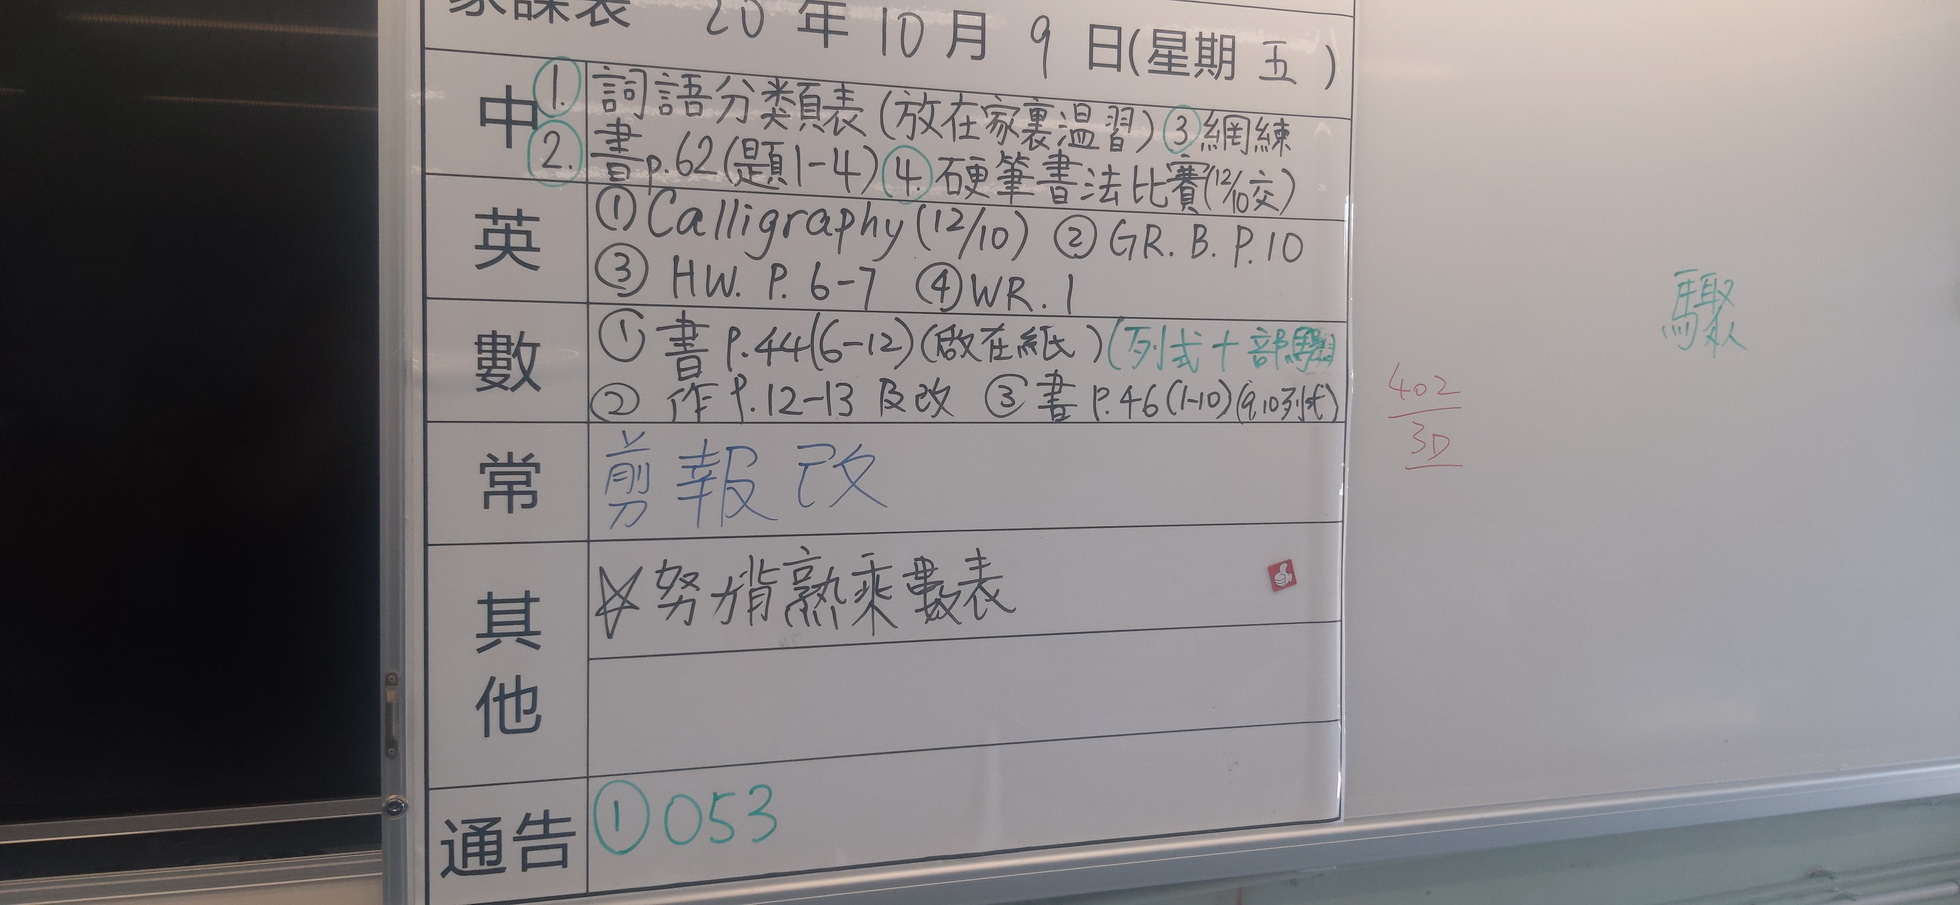 家課表 20年10月9日(星期五)
中
1. 詞語分類表(放在家裏温習) ③網練
2. 書p.62(題1-4) 4. 硬筆書法比賽(12/10交)
英
① Calligraphy (12/10) ② GR. B. P. 10
③ HW. P. 6-7 ④ WR. 1
數
① 書 P.44(6-12)(做在紙)(列式+部驟)
② 作 P.12-13 及改 ③ 書 P.46(1-10)(9,10列式)
常
剪報改
其他
☆努力背熟乘數表
通告
① 053
402
3D
驟